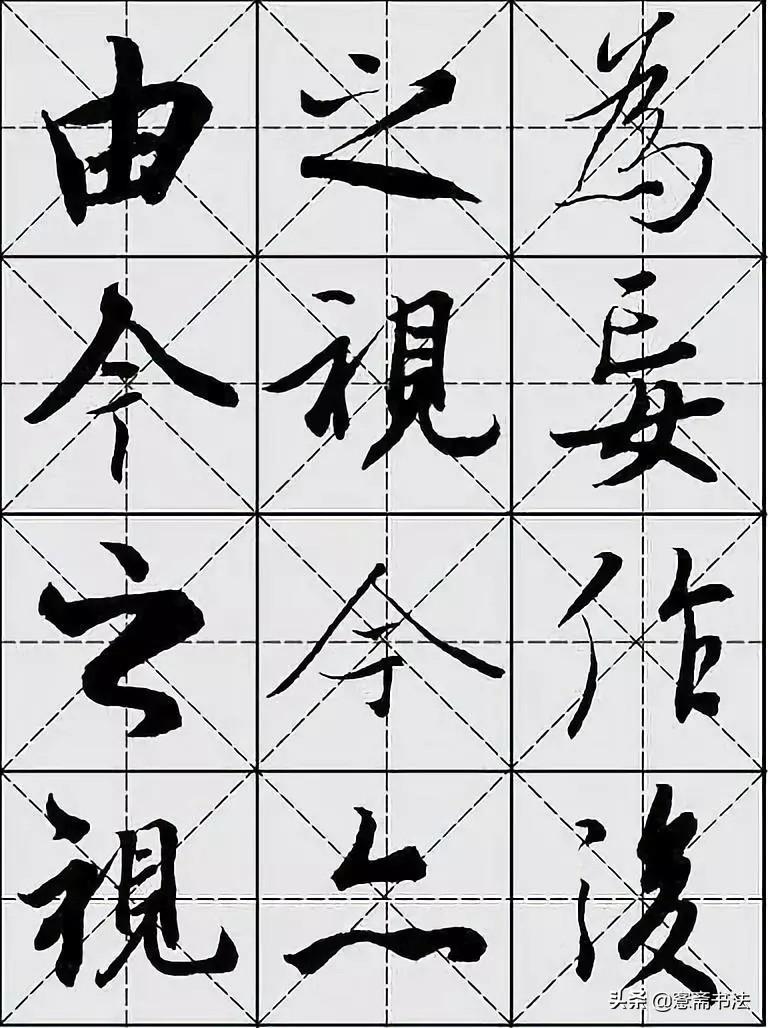 為妄作後
之視今亦
由今之視
头条 @愙斋书法